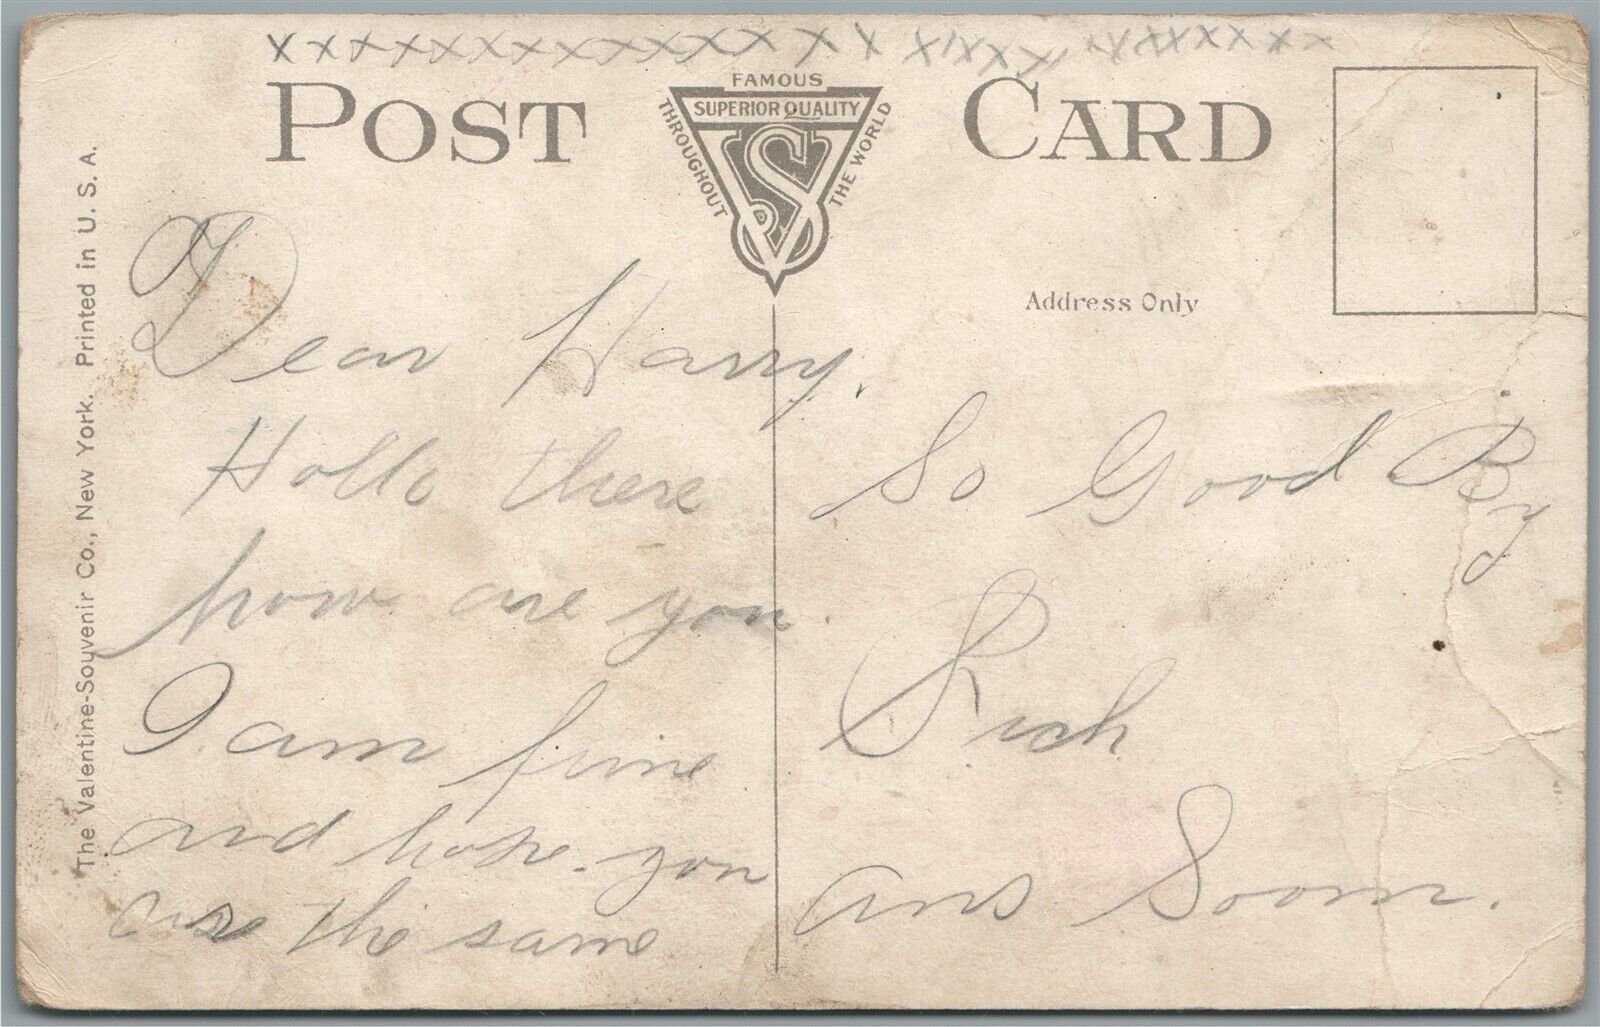 x x x x x x x x x x x x x x x x x x x x x x x x x x x
POST CARD
FAMOUS
SUPERIOR QUALITY
THROUGHOUT THE WORLD
VS
Address Only
The Valentine-Souvenir Co., New York. Printed in U. S. A.
Dear Harry.
Hollo there
how are you.
I am fine
and hope you
are the same
So Good By
Rich
ans Soom.